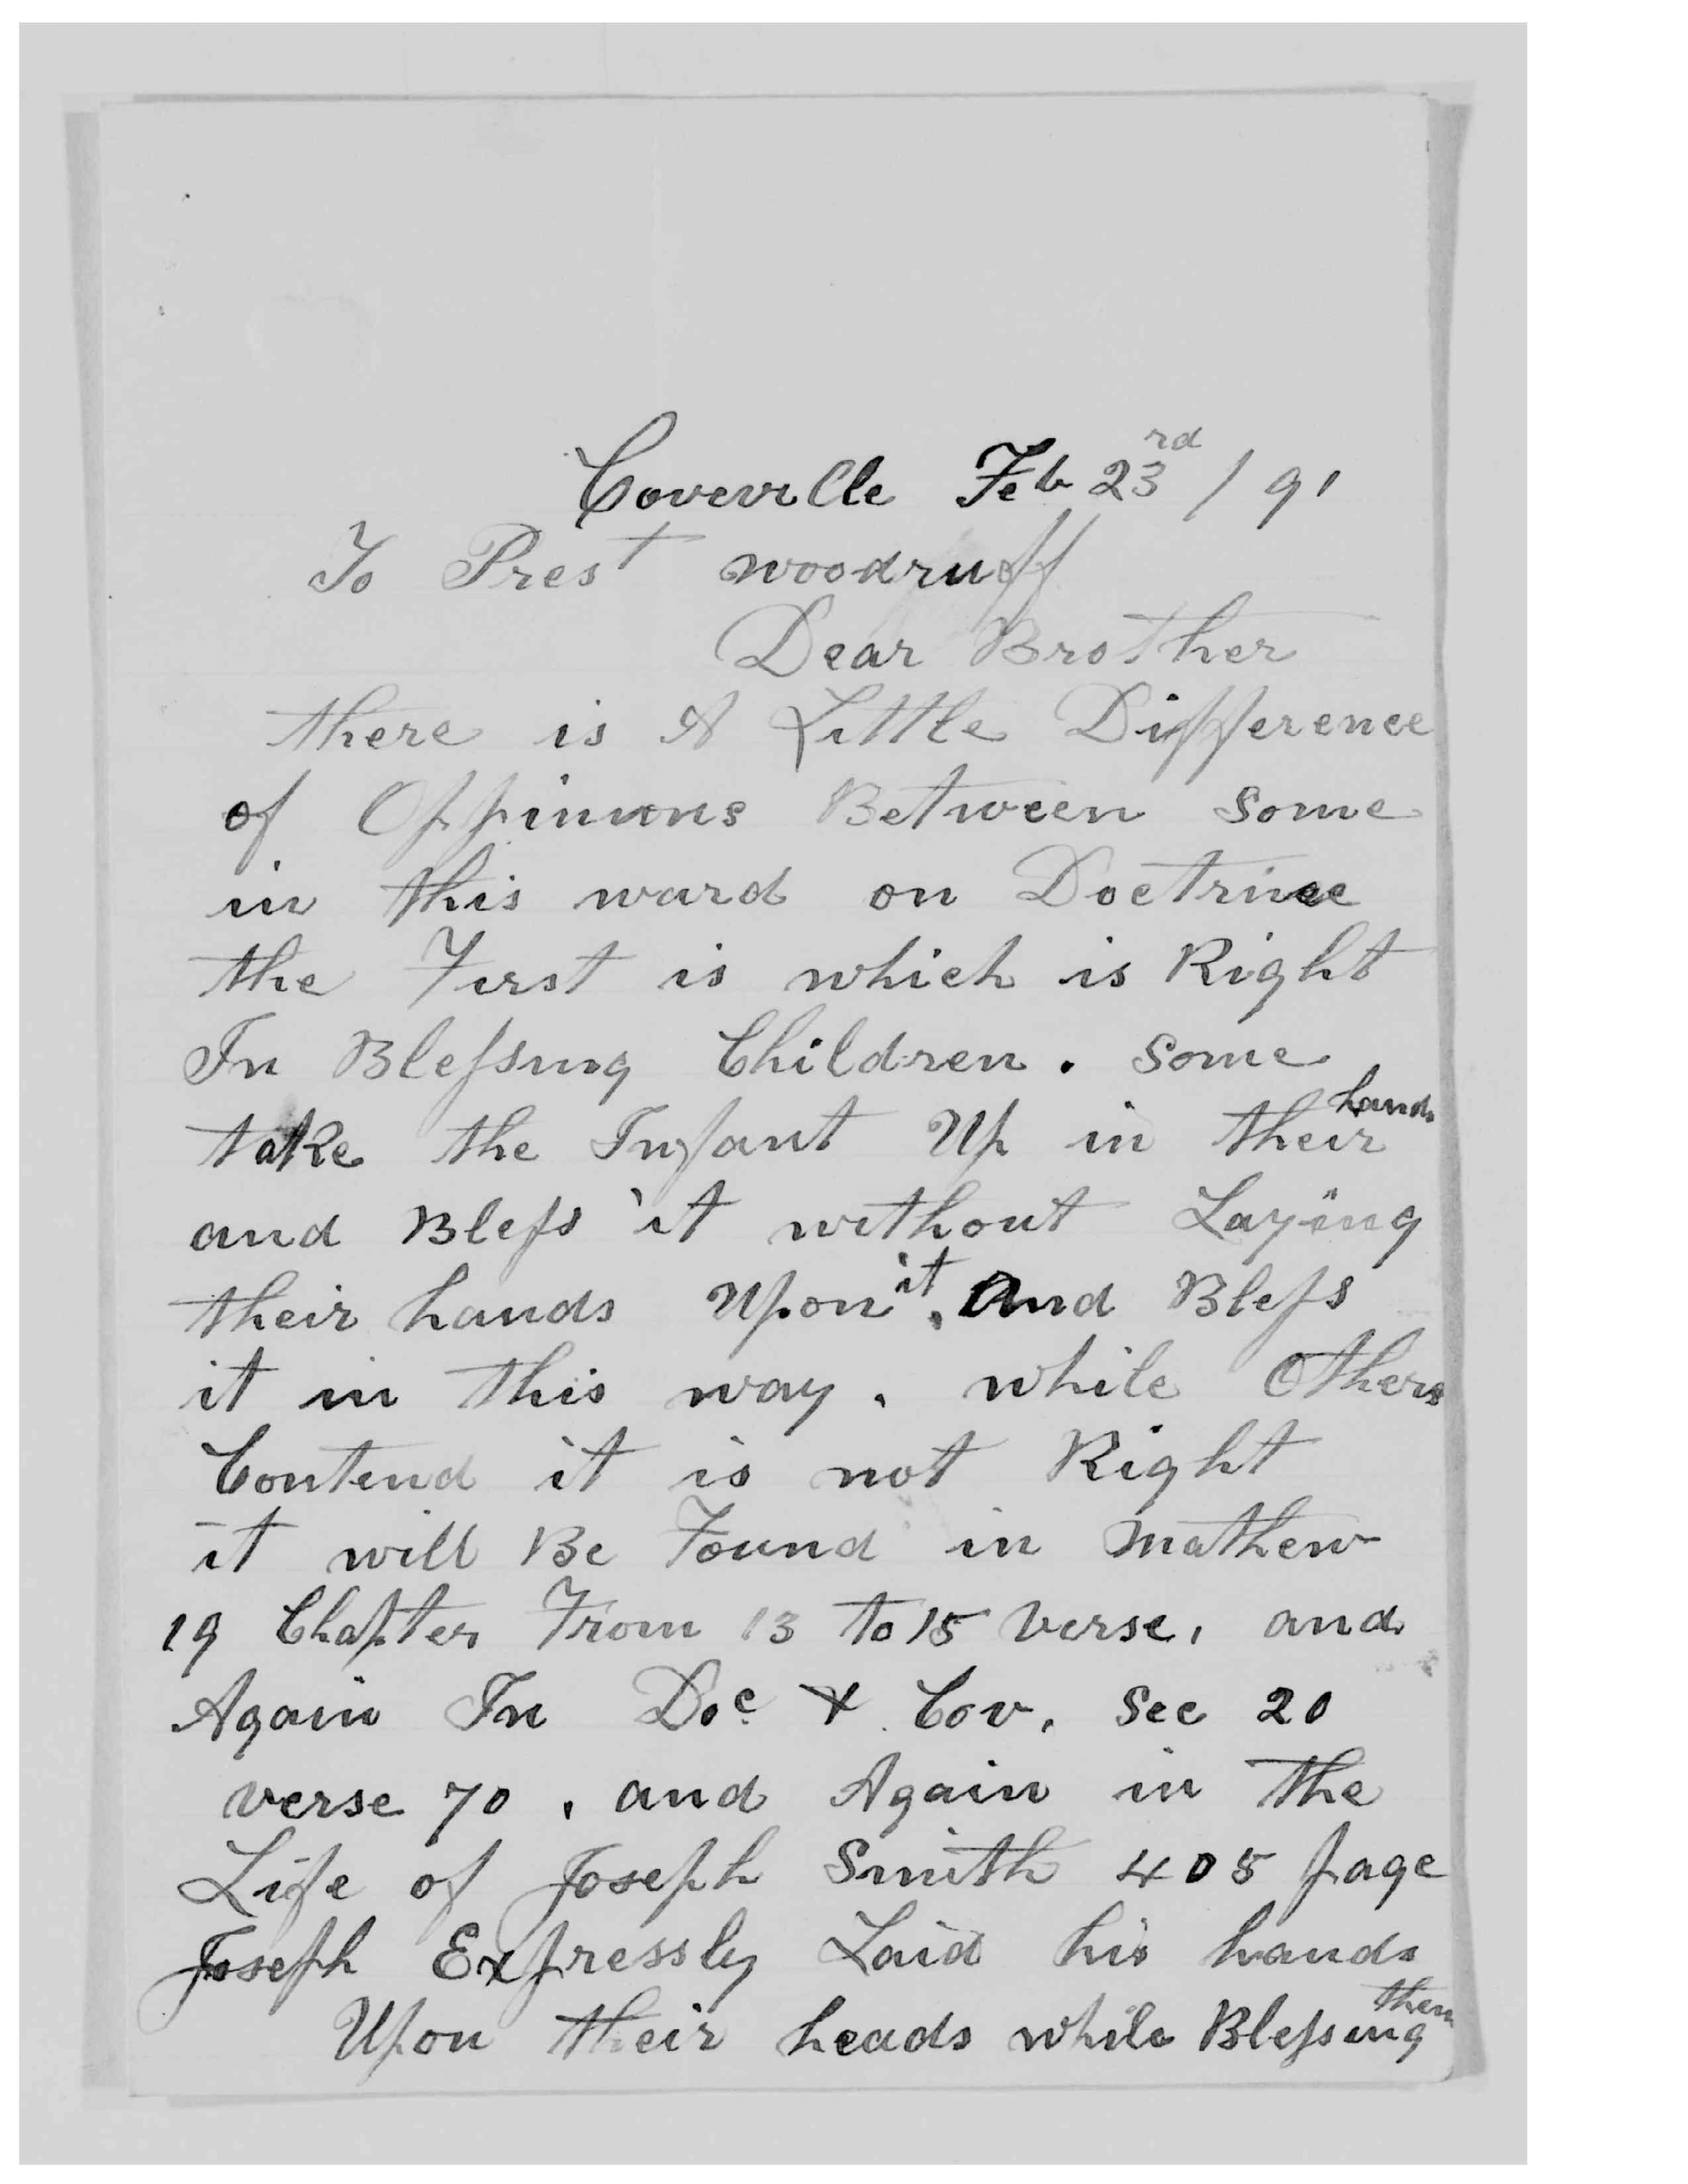 Coveville Feb 23rd / 91
To Prest woodruff
Dear Brother
there is A Little Difference
of Oppinions Between Some
in this ward on Doctrine
the First is which is Right
In Blessing Children. Some
take the Infant Up in their hands
and Bless it without Laying
their hands Upon it. And Bless
it in this way. while Others
Contend it is not Right
it will Be Found in Mathew
19 Chapter From 13 to 15 Verse, and
Again In Doc & Cov. Sec 20
verse 70. and Again in the
Life of Joseph Smith 405 page
Joseph Expressly Laid his hands
Upon their heads while Blessing them